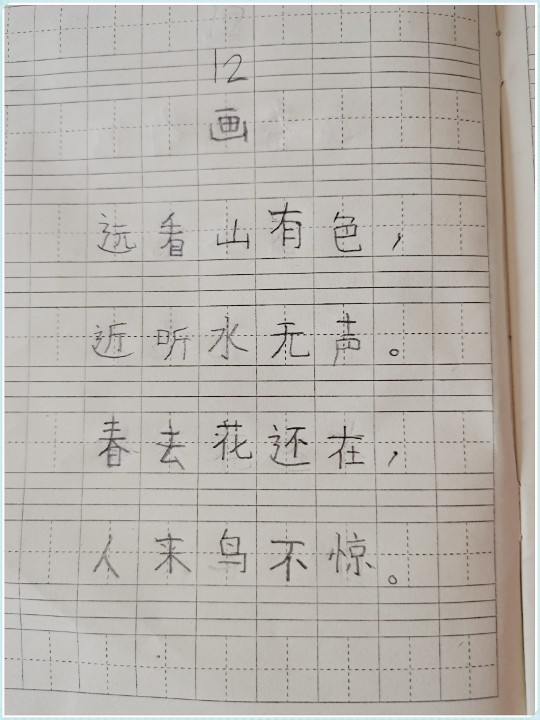 12
画
远看山有色，
近听水无声。
春去花还在，
人来鸟不惊。